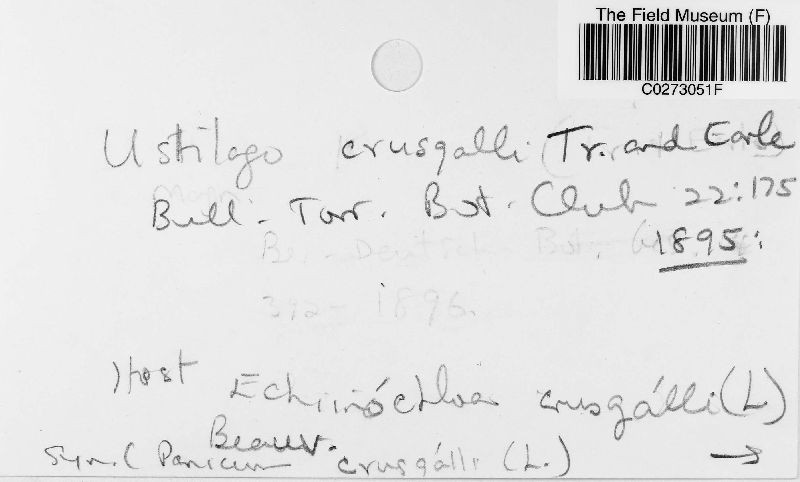 The Field Museum (F)
C0273051F
Ustilago crusgalli Tr. and Earle
Bull. Torr. Bot. Club 22:175
1895:
Ber. Deutsch. Bot.
392 - 1896.
Host Echinóchloa crusgálli (L)
Beauv.
Syn. ( Panicum crusgálli (L.) →